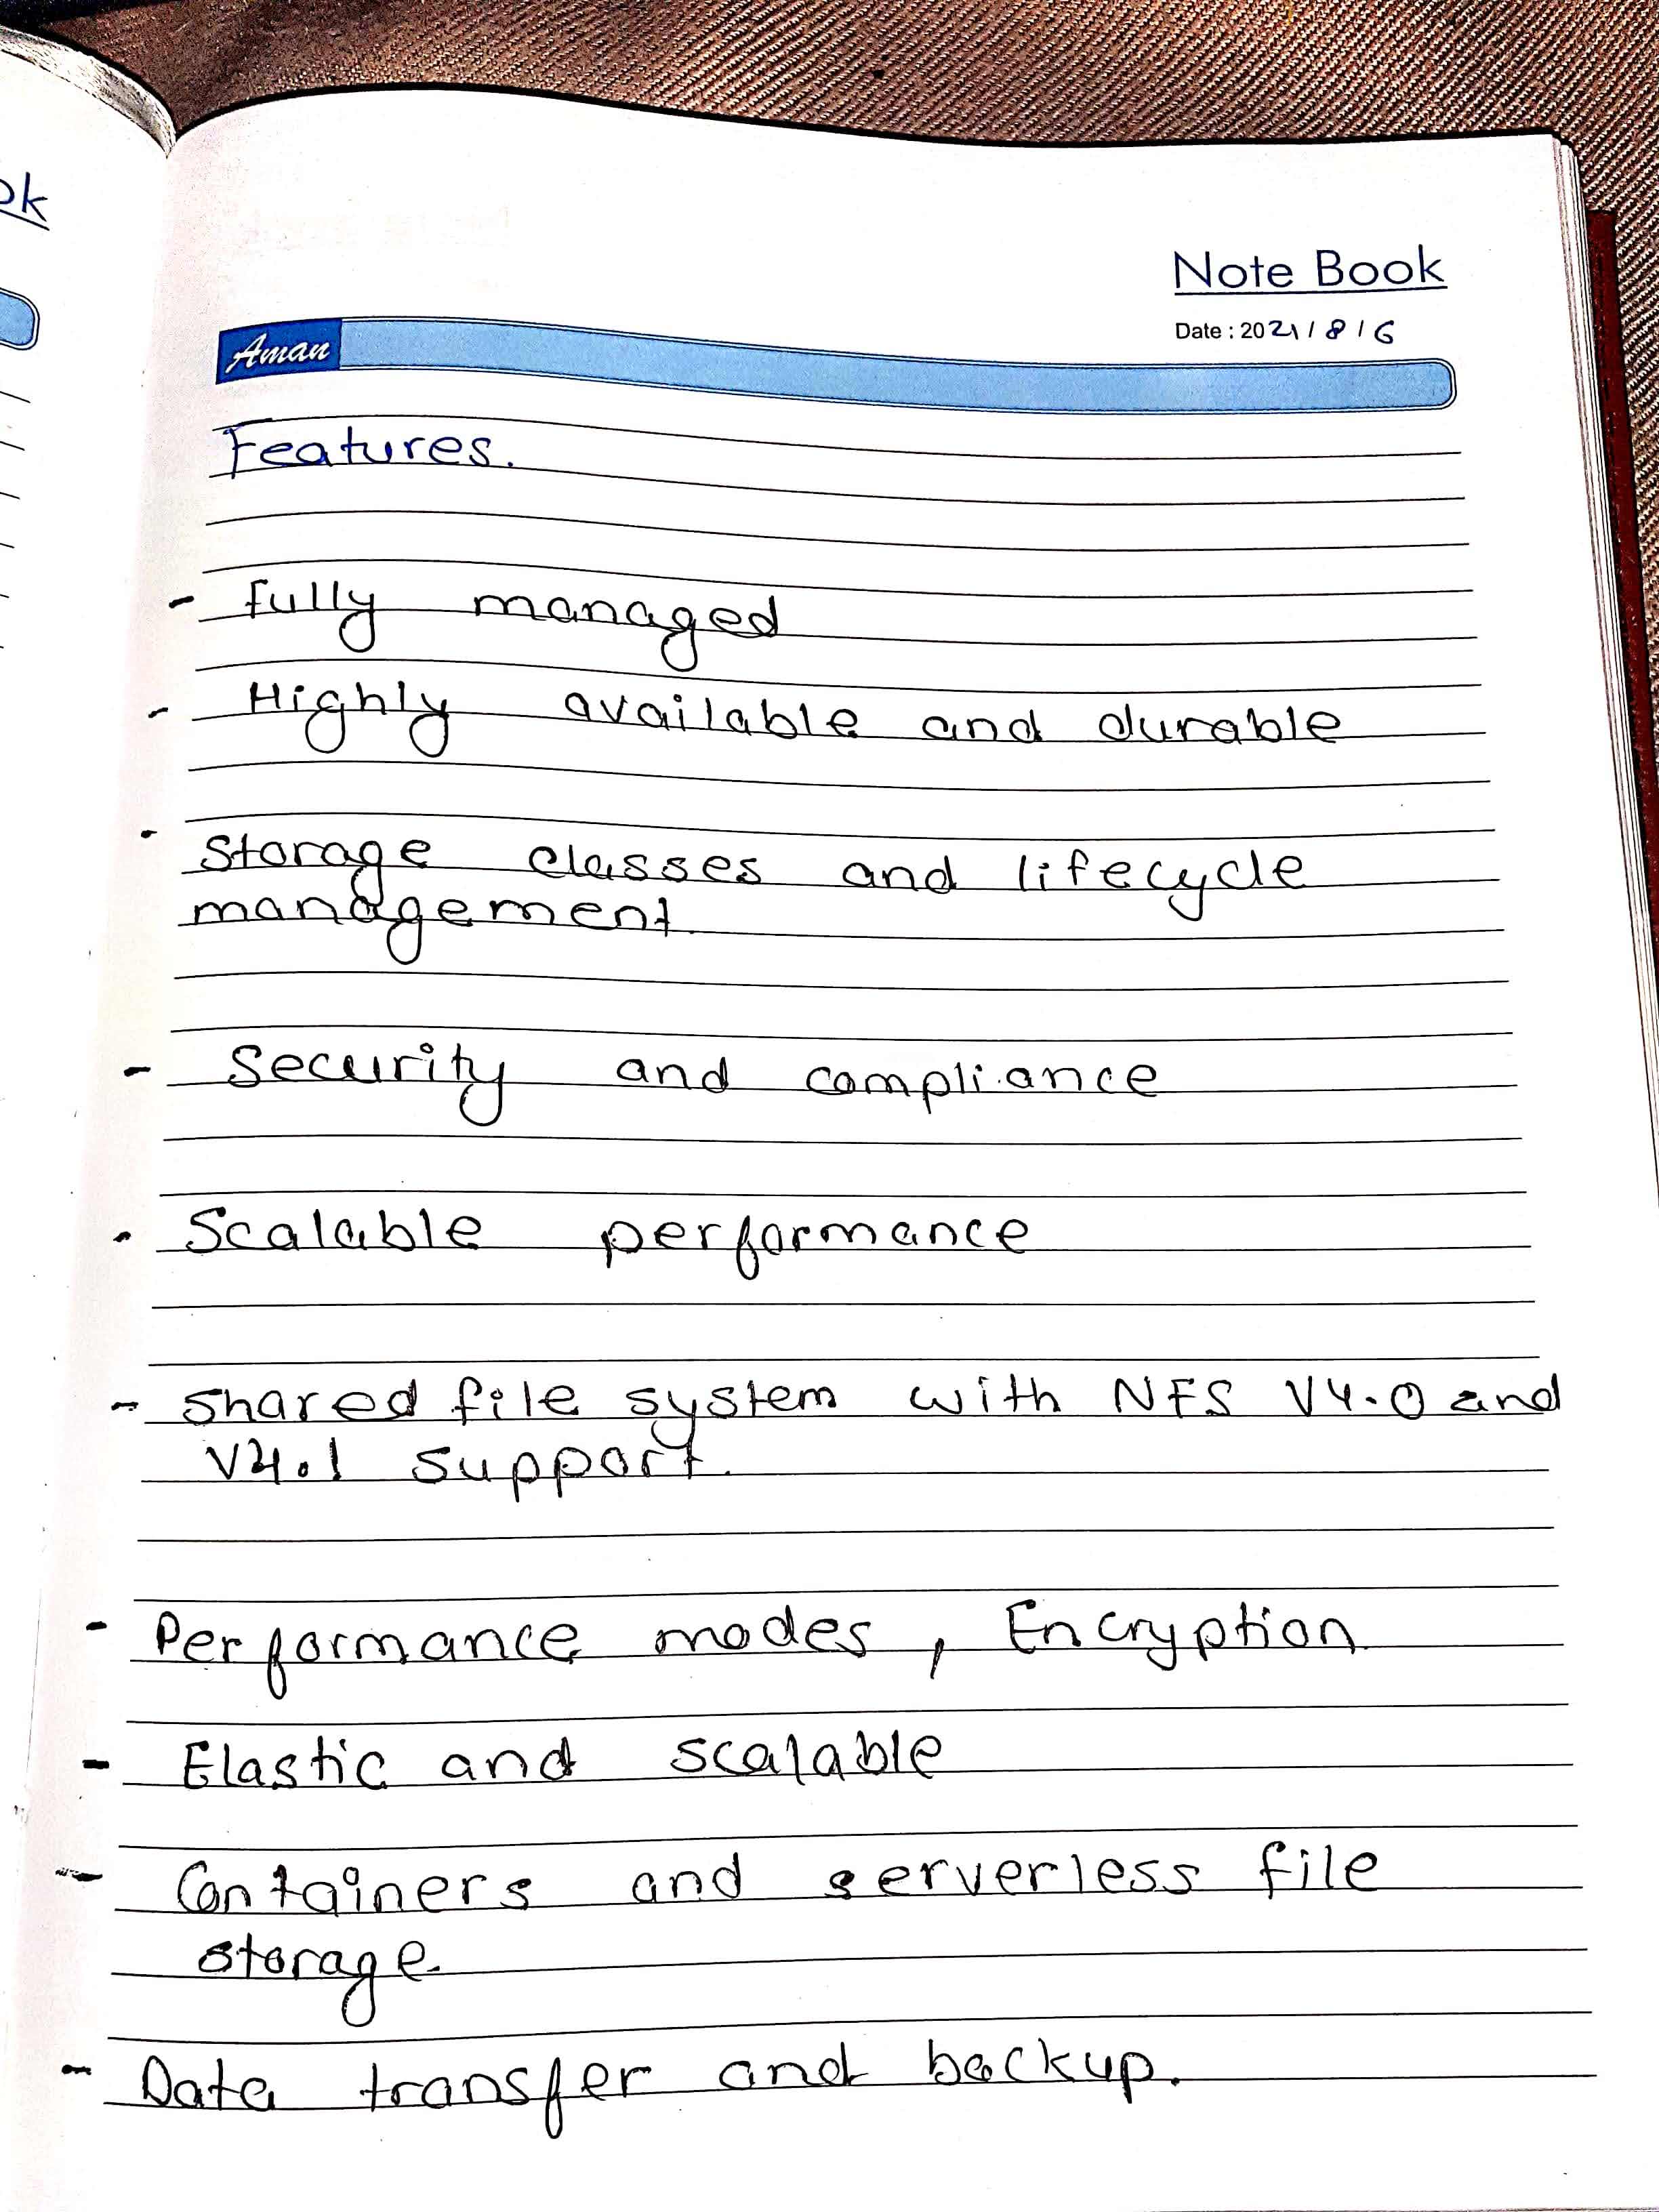 ok
Note Book
Date : 2021 / 8 / 6
Aman
Features.
- fully managed
- Highly available and durable
- Storage classes and lifecycle
management.
- Security and compliance
- Scalable performance
- shared file system with NFS V4.0 and
V4.1 support.
- Performance modes , Encryption
- Elastic and scalable
- Containers and serverless file
storage
- Data transfer and backup.